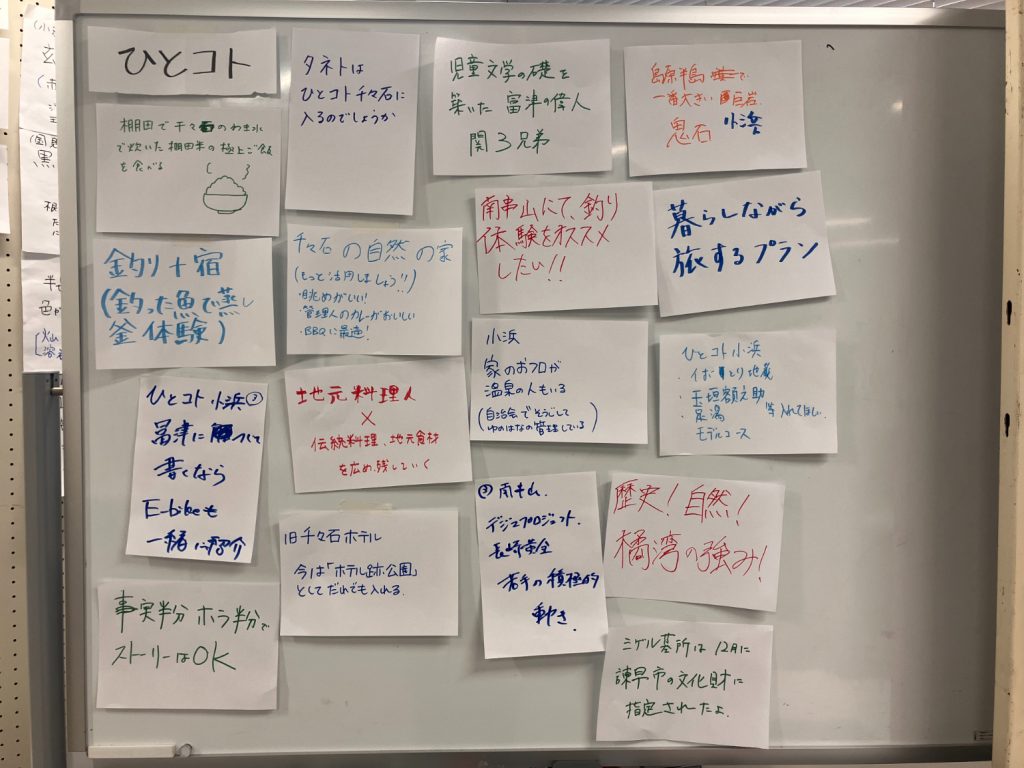 ひとコト
棚田で千々石のわき水
で炊いた棚田米の極上ご飯
を食べる
釣り+宿
(釣った魚で蒸し
釜体験)
ひとコト小浜②
富津に
書くなら
E-bikeも
一緒に紹介
事実半分 ホラ半分で
ストーリーはOK
タネトは
ひとコト千々石に
入るのでしょうか
千々石の自然の家
(もっと活用しましょう!!)
・眺めがいい!
・管理人のカレーがおいしい
・BBQに最適!
地元料理人
×
伝統料理、地元食材
を広め、残していく
旧千々石ホテル
今は「ホテル跡公園」
としてだれでも入れる.
児童文学の礎を
築いた 富津の偉人
関3兄弟
南串山にて、釣り
体験をオススメ
したい!!
小浜
家のおフロが
温泉の人もいる
(自治会でそうじして
ゆのはなの管理している)
南串山.
デジュマプロジェクト.
長崎黄金
若手の積極的
動き.
島原半島で
一番大きい 巨岩.
鬼石 小浜
暮らしながら
旅するプラン
ひとコト小浜
・イボとり地蔵
・玉垣額之助
・足湯 等入れてほしい.
モデルコース
歴史!自然!
橘湾の強み!
ミゲル墓所は12月に
諫早市の文化財に
指定されたよ.